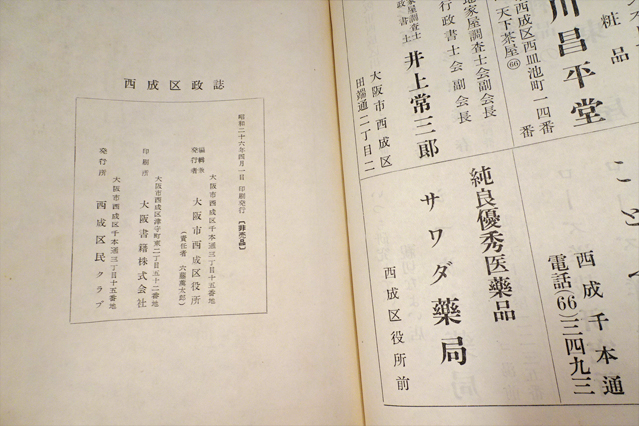 西成区政誌
昭和二十六年四月一日 印刷発行 【非売品】
大阪市西成区千本通三丁目十五番地
編輯兼発行者 大阪市西成区役所
(責任者 六藤廣太郎)
大阪市西成区津守町東二丁目五十二番地
印刷所 大阪書籍株式会社
大阪市西成区千本通三丁目十五番地
発行所 西成区民クラブ
粧品
川昌平堂
西成区西皿池町一四番
天下茶屋(66) 番
地家屋調査士会副会長
行政書士会副会長
家屋調査士
政書士
井上常三郎
大阪市西成区
田端通二丁目二
こと
西成千本通
電話(66)三四九三
純良優秀医薬品
サワダ薬局
西成区役所前